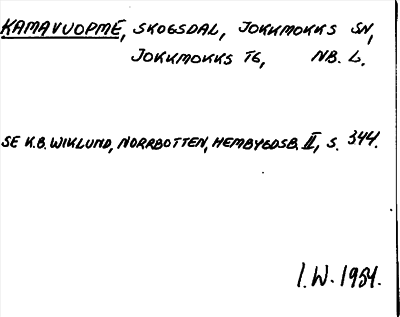 KAMAVUOPME, SKOGSDAL, JOKKMOKKS SN,
JOKKMOKKS TG, NB. L.
SE K.B. WIKLUND, NORRBOTTEN, HEMBYGDSB. II, S. 344.
I.W. 1954.